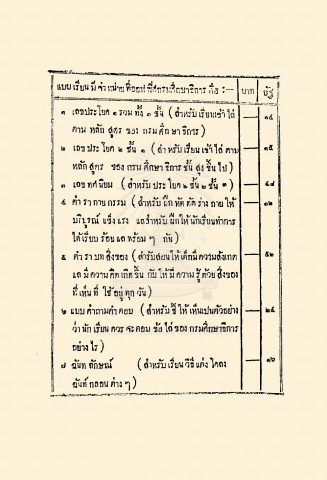 แบบ เรียน มี จำหน่าย ที่ออฟฟิศกรมศึกษาธิการ คือ :— บาท อัฐ
๑ เลขประโยค ๑ รวม ทั้ง ๓ ชั้น ( สำหรับ เรียน เข้า ไล่ — ๑๔
ตาม หลัก สูตร ของ กรม ศึก ษา ธิการ )
๒ เลข ประ โยค ๒ ชั้น ๑ ( สำ หรับ เรียน เข้า ไล่ ตาม — ๑๕
หลัก สูตร ของ กรม ศึกษา ธิการ ชั้น สูง ขึ้น ไป )
๓ เลข ทศนิยม ( สำหรับ ประ โยค ๒ ชั้น ๒ ชั้น ๓ ) — ๔๘
๔ ตำ รา กาย กรรม ( สำหรับ ฝึก หัด ดัด ร่าง กาย ให้ — ๑๒
บริบูรณ์ แข็ง แรง แลสำหรับ ฝึกให้ นักเรียนทำการ
ได้เรียบ ร้อย แล พร้อม ๆ กัน )
๕ ตำ รา บท สิ่งของ ( สำรับสอน ให้เด็กมี ความสังเกต — ๕๒
แล มี ความ คิด เกิด ขึ้น กับ ให้ มี ความ รู้ ด้วย สิ่งของ
ที่ เห็น ที่ ใช้ อยู่ ทุก วัน )
๖ แบบ คำถามคำ ตอบ ( สำหรับ ชี้ ให้ เห็นเปนตัวอย่าง — ๒๔
ว่า นัก เรียน ควร จะ ตอบ ข้อ ไล่ ของ กรมศึกษาธิการ
อย่าง ไร )
๗ ฉันท ลักษณ์ ( สำหรับ เรียน วิธี แต่ง โคลง — ๑๖
ฉันท์ กลอน ต่าง ๆ )